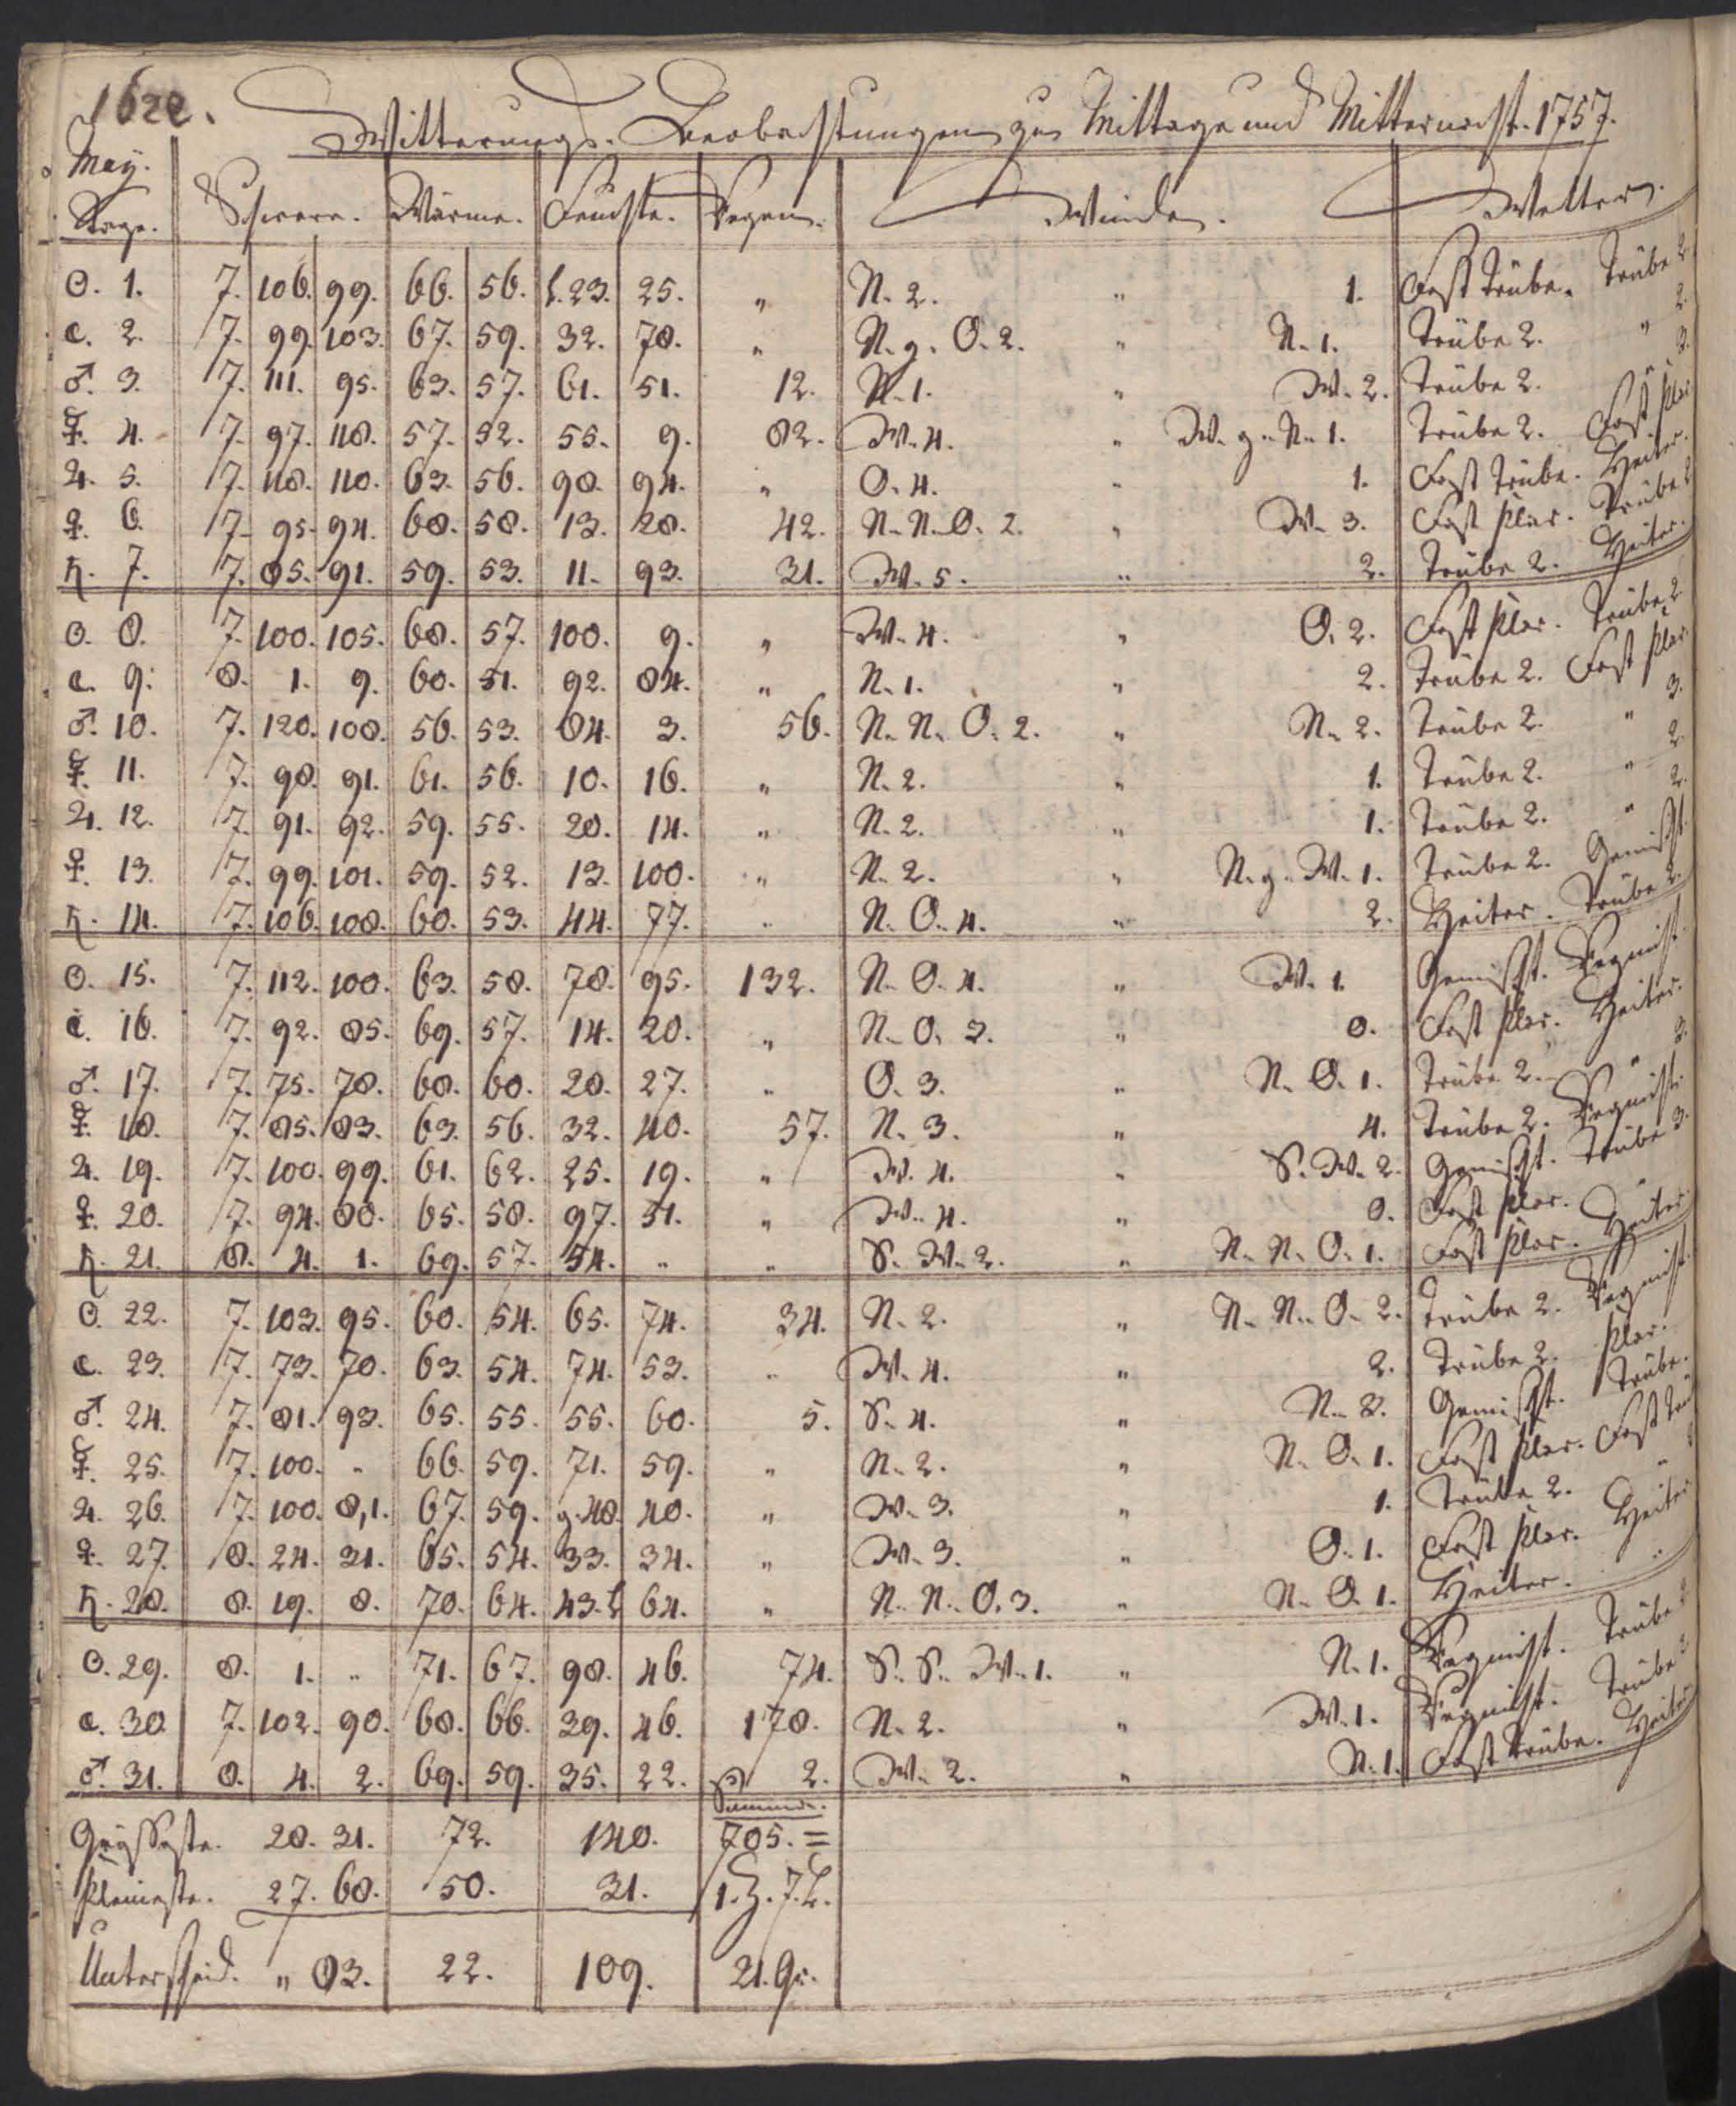 162e.
Witterungs-Beobachtungen zu Mittage und Mitternacht. 1757.
May.
Tage. Schwere. Wärme. Feuchte. Regen. Winde. Wetter.
☉. 1. 7. 106. 99. 66. 56. f. 23. 25. „ N. 2. „ 1. Fast trübe. Trübe 2.
☾. 2. 7. 99. 103. 67. 59. 32. 78. „ N. g. O. 2. „ N. 1. Trübe 2. „ 2.
♂. 3. 7. 111. 95. 63. 57. 61. 51. 12. N. 1. „ W. 2. Trübe 2. „ 3.
☿. 4. 7. 97. 118. 57. 52. 55. 9. 82. W. 4. „ W. g. N. 1. Trübe 2. Fast klar
♃. 5. 7. 118. 110. 63. 56. 98. 94. „ O. 4. „ 1. Fast trübe. Heiter.
♀. 6. 7. 95. 94. 68. 58. 13. 28. 42. N. N. O. 2. „ W. 3. Fast klar. Trübe 2
♄. 7. 7. 85. 91. 59. 53. 11. 93. 31. W. 5. „ 2. Trübe 2. Heiter.
☉. 8. 7. 100. 105. 68. 57. 100. 9. „ W. 4. „ O. 2. Fast klar. Trübe 2
☾. 9. 8. 1. 9. 60. 51. 92. 84. „ N. 1. „ 2. Trübe 2. Fast klar.
♂. 10. 7. 120. 108. 56. 53. 84. 3. 56. N. N. O. 2. „ N. 2. Trübe 2. „ 3.
☿. 11. 7. 98. 91. 61. 56. 10. 16. „ N. 2. „ 1. Trübe 2. „ 2.
♃. 12. 7. 91. 92. 59. 55. 20. 14. „ N. 2. „ 1. Trübe 2. „ 2.
♀. 13. 7. 99. 101. 59. 52. 13. 100. „ N. 2. „ N. g. W. 1. Trübe 2. Gemischt.
♄. 14. 7. 106. 108. 60. 53. 44. 77. „ N. O. 4. „ 2. Heiter. Trübe 2.
☉. 15. 7. 112. 100. 63. 58. 78. 95. 132. N. O. 4. „ W. 1. Gemischt. Regnicht.
☾. 16. 7. 92. 85. 69. 57. 14. 20. „ N. O. 3. „ 0. Fast klar. Heiter.
♂. 17. 7. 75. 78. 68. 60. 28. 27. „ O. 3. „ N. O. 1. Trübe 2. „ 3.
☿. 18. 7. 85. 83. 63. 56. 32. 40. 57. N. 3. „ 4. Trübe 2. Regnicht.
♃. 19. 7. 100. 99. 61. 62. 25. 19. „ W. 4. „ S. W. 2. Gemischt. Trübe 3.
♀. 20. 7. 94. 88. 65. 58. 97. 51. „ W. 4. „ 0. Fast klar. „
♄. 21. 8. 4. 1. 69. 57. 54. „ „ S. W. 2. „ N. N. O. 1. Fast klar. Heiter
☉. 22. 7. 103. 95. 60. 54. 65. 74. 34. N. 2. „ N. N. O. 2. Trübe 2. Regnicht.
☾. 23. 7. 73. 70. 63. 54. 74. 53. „ W. 4. „ 2. Trübe 2. Klar.
♂. 24. 7. 81. 93. 65. 55. 55. 60. 5. S. 4. „ N. 2. Gemischt. Trübe.
☿. 25. 7. 100. „ 66. 59. 71. 59. „ N. 2. „ N. O. 1. Fast klar. Fast trü
♃. 26. 7. 100. 8,1. 67. 59. g. 48. 40. „ W. 3. „ 1. Trübe 2. „
♀. 27. 8. 24. 31. 65. 54. 33. 34. „ W. 3. „ O. 1. Fast klar. Heiter
♄. 28. 8. 19. 8. 70. 64. 43. f 64. „ N. N. O. 3. „ N. O. 1. Heiter. „
☉. 29. 8. 1. „ 71. 67. 98. 46. 74. S. S. W. 1. „ N. 1. Regnicht. Trübe 2
☾. 30. 7. 102. 90. 68. 66. 39. 46. 178. N. 2. „ W. 1. Regnicht. Trübe 2
♂. 31. 8. 4. 2. 69. 59. 35. 22. 2. W. 2. „ N. 1. Fast trübe. Heiter
Summe.
Grösseste. 28. 31. 72. 140. 705. =
Kleineste. 27. 68. 50. 31. 1. Z. 7. L.
Unterscheid. „ 83. 22. 109. 21. Gr.